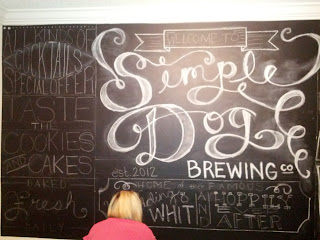 ALL KINDS OF
COCKTAILS
SPECIAL OFFER
TASTE
THE
COOKIES
AND CAKES
BAKED
Fresh
DAILY
WELCOME TO
Simple
Dog
BREWING CO
est. 2012
HOME of the FAMOUS
WHIT AND HOPPILY
AFTER